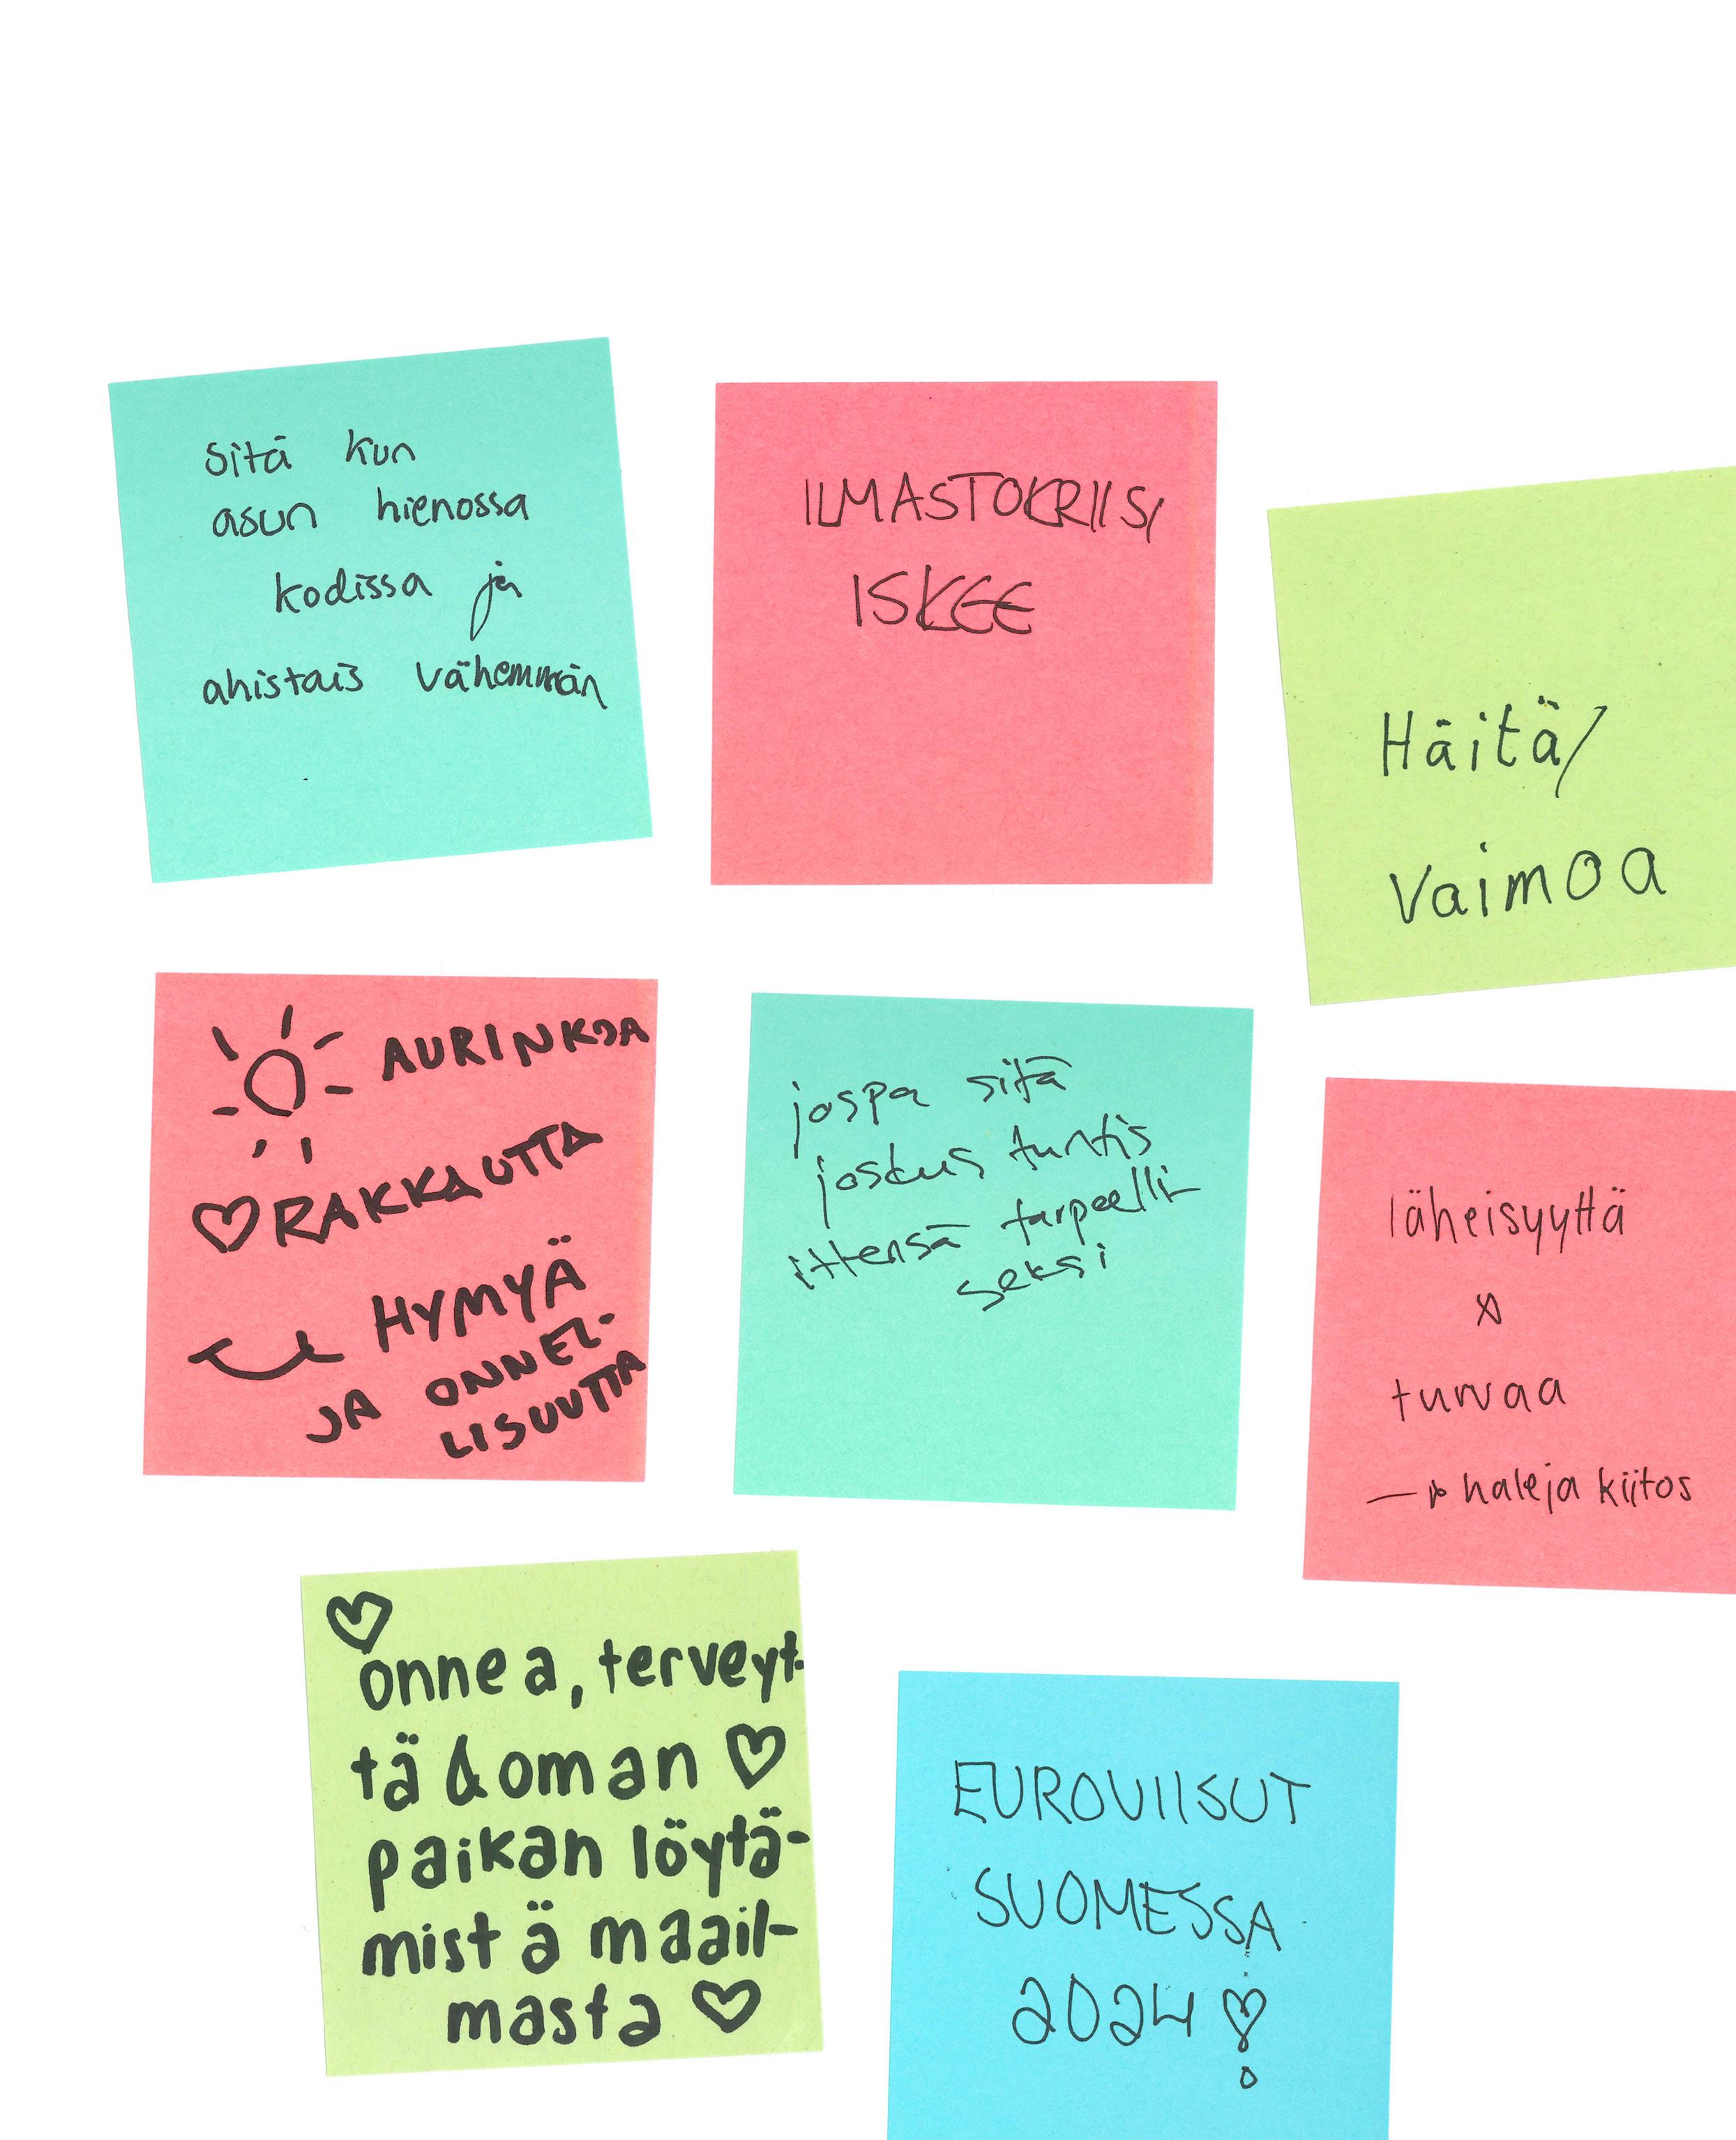 sitä kun
asun hienossa
kodissa ja
ahistais vähemmän
ILMASTOKRIISI
ISKEE
Häitä/
vaimoa
AURINKOA
♡ RAKKAUTTA
HYMYÄ
JA ONNEL-
LISUUTTA
jospa sitä
joskus tuntis
ittensä tarpeelli-
seksi
läheisyyttä
&
turvaa
→ haleja kiitos
♡
onnea, terveyt-
tä & oman ♡
paikan löytä-
mistä maail-
masta ♡
EUROVIISUT
SUOMESSA
2024 ♡